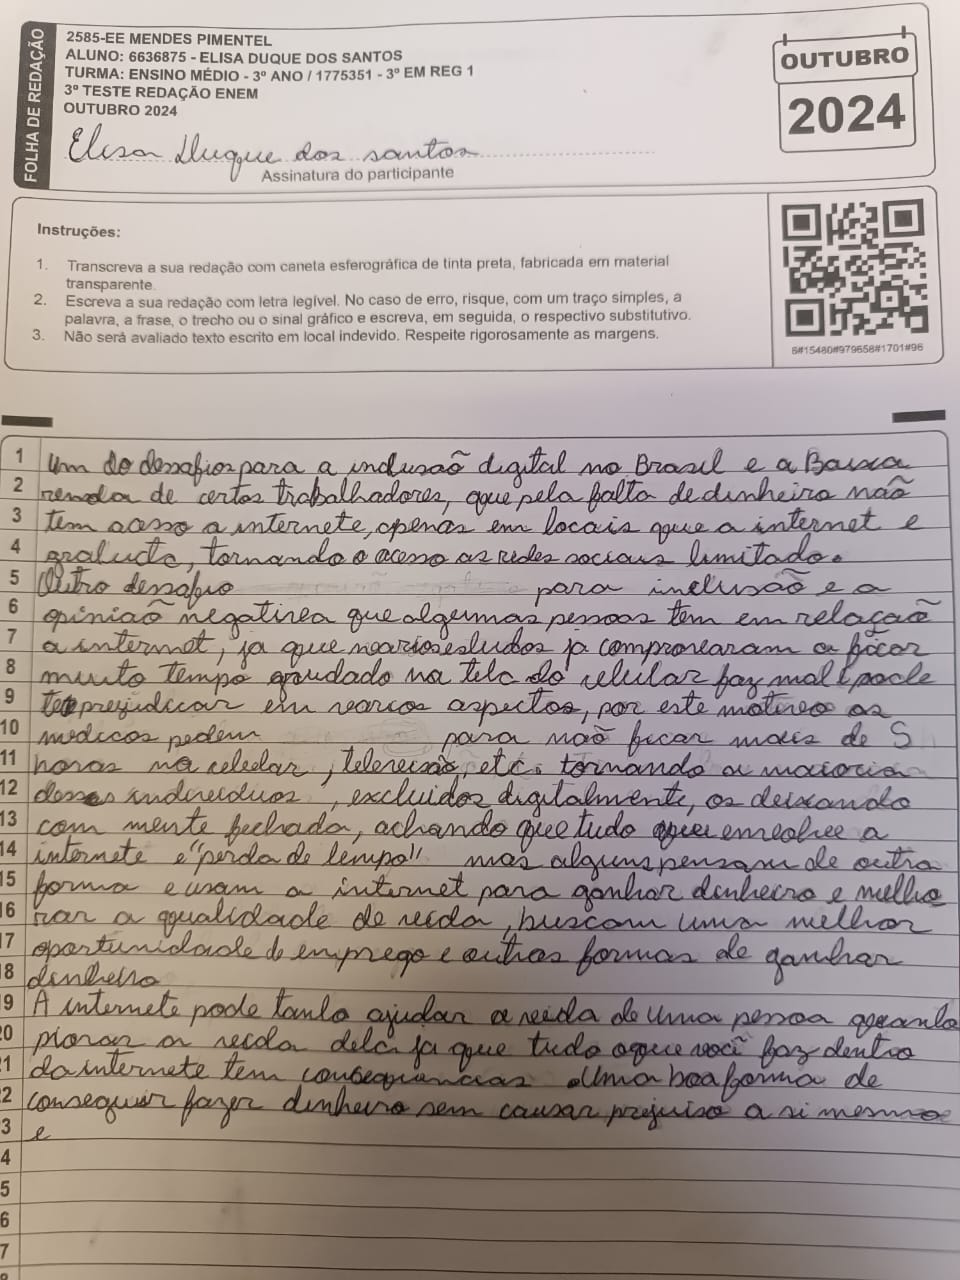 FOLHA DE REDAÇÃO
2585-EE MENDES PIMENTEL
ALUNO: 6636875 - ELISA DUQUE DOS SANTOS
TURMA: ENSINO MÉDIO - 3º ANO / 1775351 - 3º EM REG 1
3º TESTE REDAÇÃO ENEM
OUTUBRO 2024
Elisa Duque dos santos
Assinatura do participante
OUTUBRO
2024
Instruções:
1. Transcreva a sua redação com caneta esferográfica de tinta preta, fabricada em material
transparente.
2. Escreva a sua redação com letra legível. No caso de erro, risque, com um traço simples, a
palavra, a frase, o trecho ou o sinal gráfico e escreva, em seguida, o respectivo substitutivo.
3. Não será avaliado texto escrito em local indevido. Respeite rigorosamente as margens.
6#15480#979658#1701#96
1 Um do desafios para a inclusaõ digital no Brasil e a Baixa
2 renda de certos trabalhadores, que pela falta de dinheiro naõ
3 tem acesso a internete, apenas em locais que a internet e
4 gratuita, tornando o acesso as redes sociais limitado.
5 Outro desafio para inclusaõ e a
6 opiniaõ negativa que algumas pessoas tem em relaçaõ
7 a internet, ja que varios estudos ja comprovaram q ficar
8 muito tempo grudado na tela do celular faz mal e pode
9 te prejudicar em varios aspectos, por este motivo os
10 medicos pedem para naõ ficar mais de 5
11 horas no celular, televisaõ, etc. tornando a maioria
12 desses individuos, excluidos digitalmente, os deixando
13 com mente fechada, achando que tudo que envolve a
14 internete e "perda de tempo" mas alguns pensam de outra
15 forma e usam a internet para ganhar dinheiro e melho
16 rar a qualidade de vida, buscam uma melhor
17 oportunidade de emprego e outras formas de ganhar
8 dinheiro
9 A internete pode tanto ajudar a vida de uma pessoa quanto
20 piorar a vida dela, ja que tudo oque você faz dentro
21 da internete tem consequancias. Uma boa forma de
2 conseguir fazer dinheiro sem causar prejuiso a si mesmo
3 e
4
5
6
7